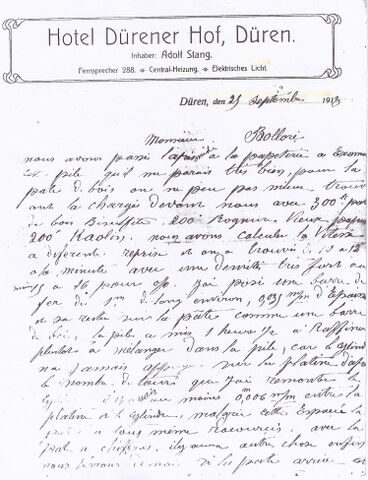 Hotel Dürener Hof, Düren.
Inhaber: Adolf Stang.
Fernsprecher 288. Central-Heizung. Elektrisches Licht.
Düren, den 25 Septembre 1913
Monsieur Bolloré
nous avons passé à la papeterie a Exami
pile qui me parais très bien, pour la
pate de bois on ne peu pas mieux trouv
ont la chargé devant nous avec 300 K pate
de bois Bisulfite 200 Rognur Vieux papier
200 Kaolin. nous avons calculer la Vitesse
a diferente reprise et on a trouvé de 13 a 12
a la minute avec une densité tres fort au
15 a 16 pour %. J'ai posé une barre de
fer de 1m de long environ, 0,035 m/m d'Epaisse
et sa reste sur la pâte comme une barre
de boi, la pile a mis 1 heure 1/2 a Raffiner
plutot a mélanger dans la pile, car le cylind
na Jamais sur la platine d'après
le nombre de tours que J'ai remonter le
au moins 0,006 m/m entre la
platine et le cylindre, malgré cette Espace la
a tous même raccourcis, avec la
pate a chiffons, il y aura autre chose enfin
nous si la pate arrive en